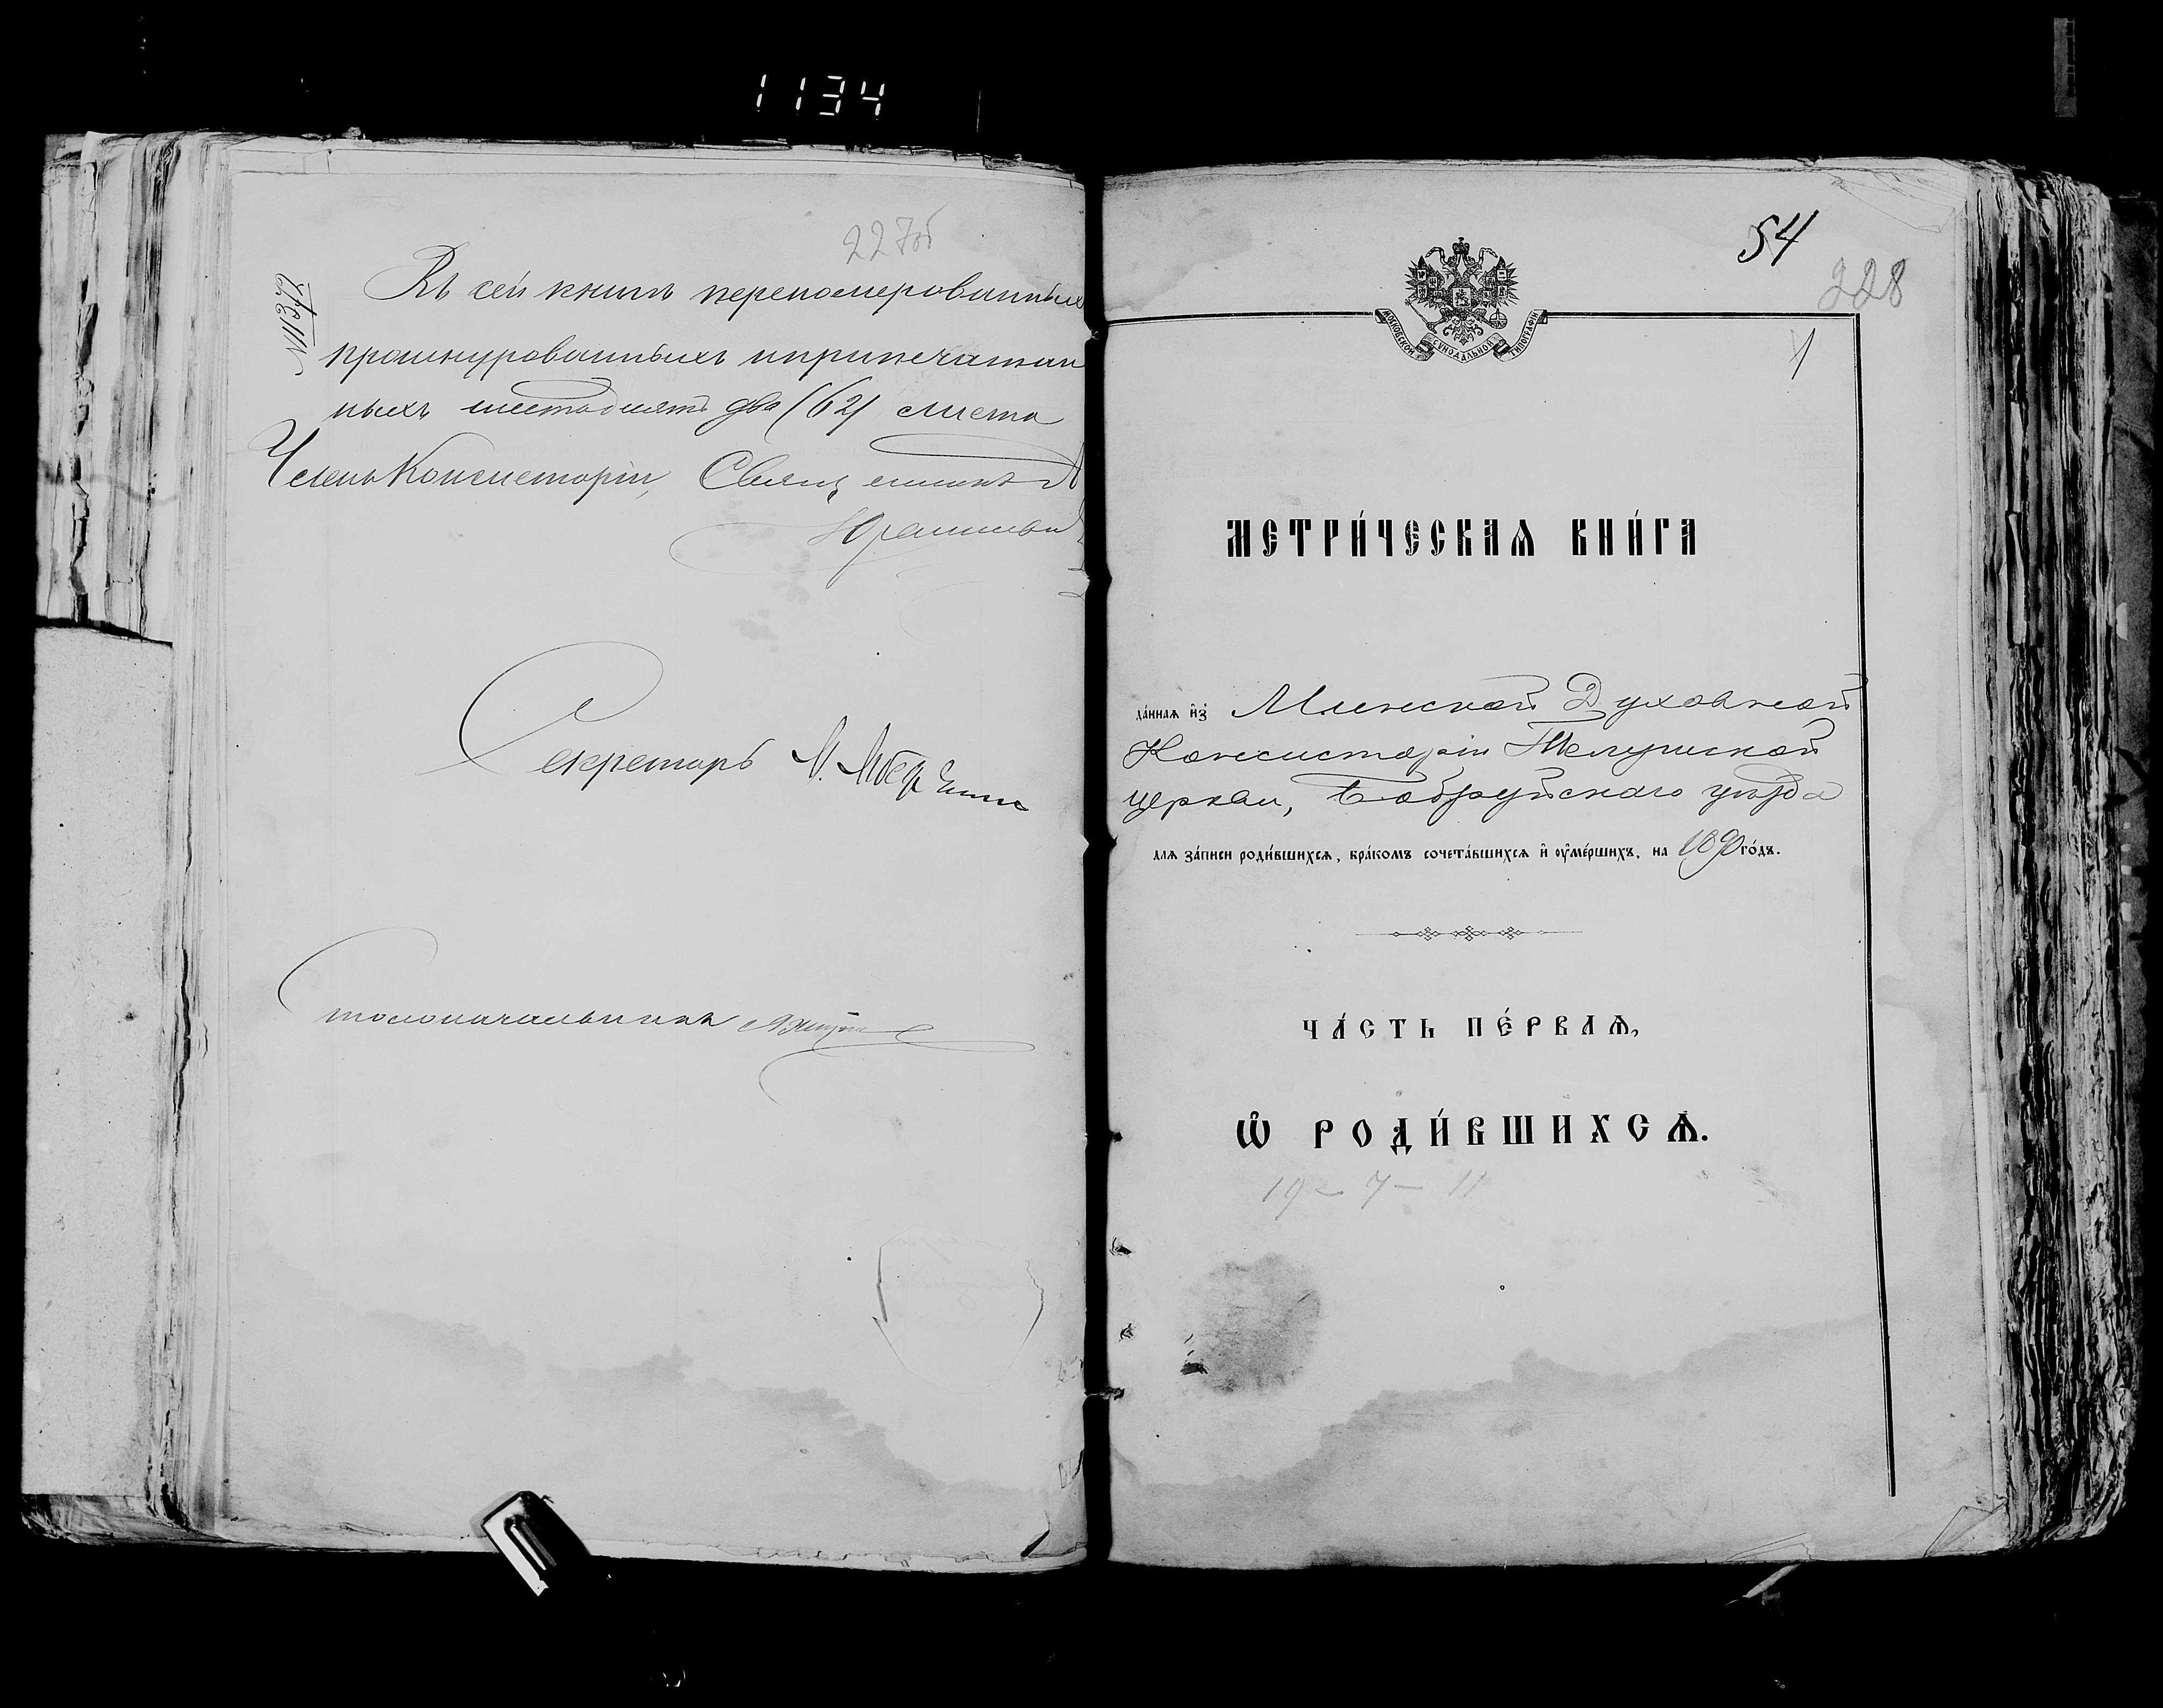 1134
227об
Въ сей книгѣ переномерованныхъ
прошнурованныхъ и припечатан
ныхъ шестьдесятъ два (62) листа
Членъ Консисторіи, Священникъ
Секретарь
Столоначальникъ
54
228
МОСКОВСКОЙ СѴНОДАЛЬНОЙ ТИПОГРАФІИ
1
МЕТРИ́ЧЕСКАѦ КНИ́ГА
да́ннаѧ и҆з̾ Минской Духовной
Консисторіи Телушской
церкви, Бобруйскаго уѣзда
длѧ за́писи роди́вшихсѧ, бра́комъ сочета́вшихсѧ и҆ ᲂу҆ме́ршихъ, на 1890 го́дъ.
ЧА́СТЬ ПЕ́РВАѦ,
Ѡ҆ РОДИ́ВШИХСѦ.
19 — 7 — 11